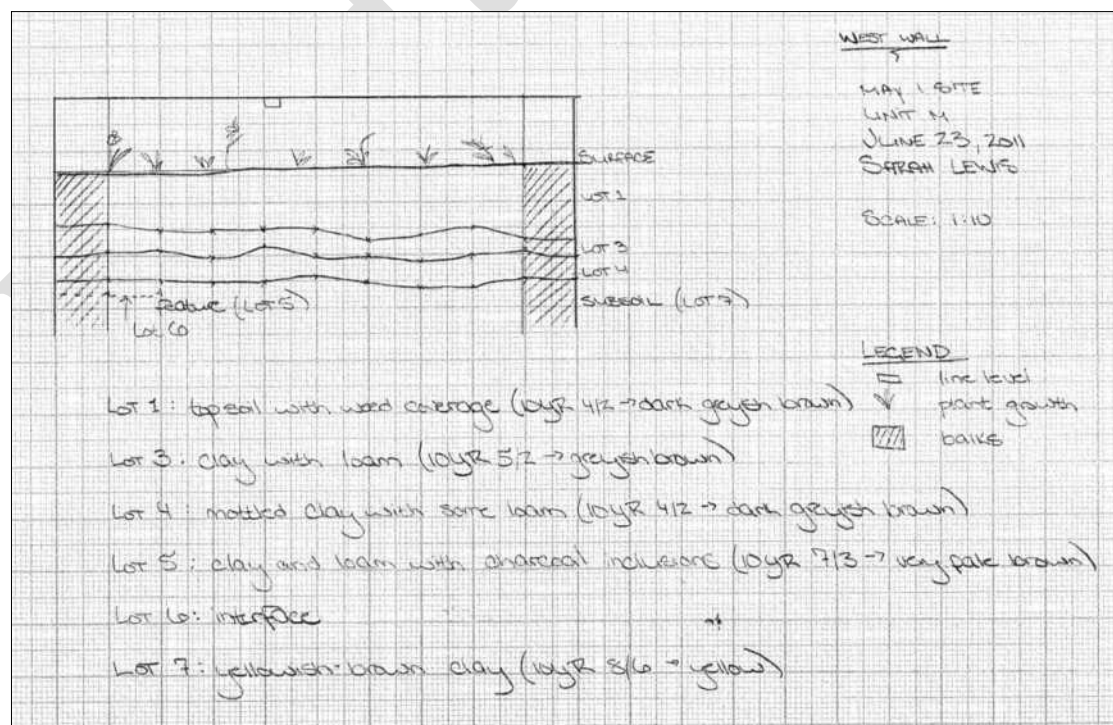 WEST WALL
MAY 1 SITE
UNIT M
JUNE 23, 2011
SARAH LEWIS
SCALE: 1:10
SURFACE
LOT 1
LOT 3
LOT 4
feature (LOT 5)
SUBSOIL (LOT 7)
Lot 6
LEGEND
line level
plant growth
balks
LOT 1: topsoil with weed coverage (10YR 4/2 → dark greyish brown)
LOT 3: clay with loam (10YR 5/2 → greyish brown)
LOT 4: mottled clay with some loam (10YR 4/2 → dark greyish brown)
LOT 5: clay and loam with charcoal inclusions (10YR 7/3 → very pale brown)
LOT 6: interface
LOT 7: yellowish-brown clay (10YR 8/6 → yellow)